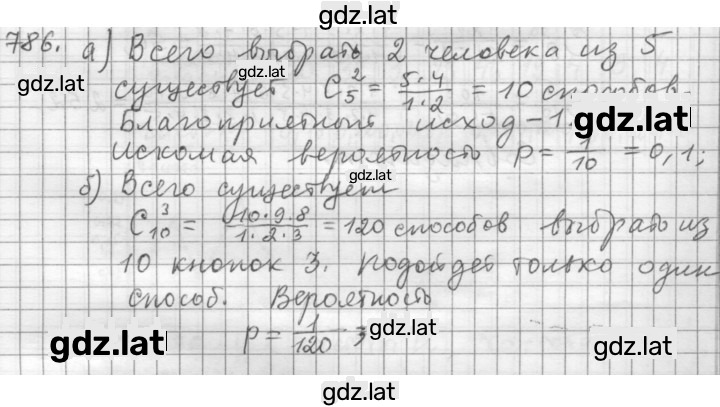 gdz.lat
786. а) Всего выбрать 2 человека из 5
gdz.lat
gdz.lat
существует C₅² = 5·4/1·2 = 10 способов.
Благоприятный исход – 1.
gdz.lat
Искомая вероятность p = 1/10 = 0,1;
gdz.lat
б) Всего существует
C₁₀³ = 10·9·8/1·2·3 = 120 способов выбрать из
10 кнопок 3. Подойдет только один
способ. Вероятность
p = 1/120
gdz.lat
gdz.lat
gdz.lat
gdz.lat